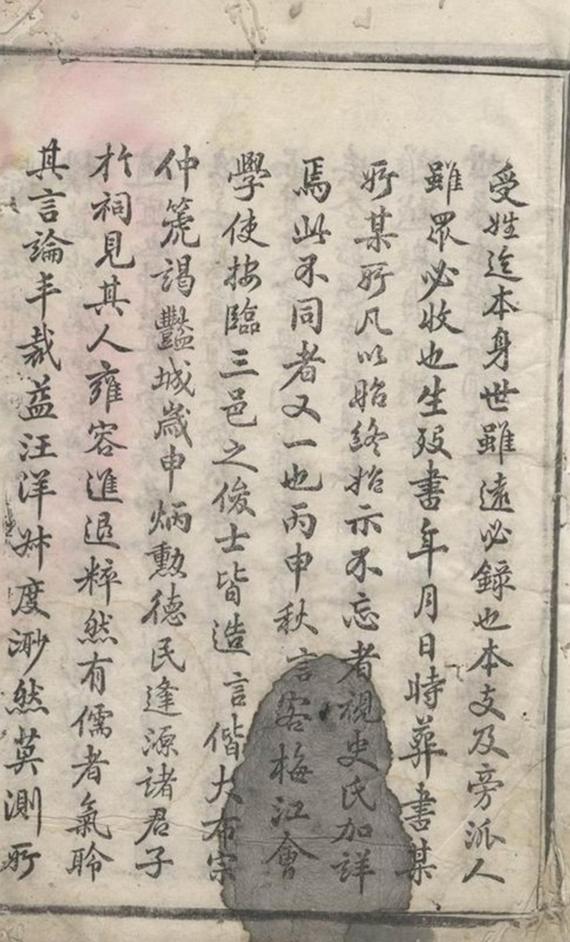 受姓迄本身世雖遠必錄也本支及旁派人
雖眾必收也生歿書年月日時葬書某
所某所凡以始終始示不忘者視史氏加詳
焉此不同者又一也丙申秋言客梅江會
學使按臨三邑之俊士皆造言偕大布宗
仲箎謁豔城歲申炳勳德民逢源諸君子
於祠見其人雍容進退粹然有儒者氣聆
其言論丰裁益汪洋叔度渺然莫測所